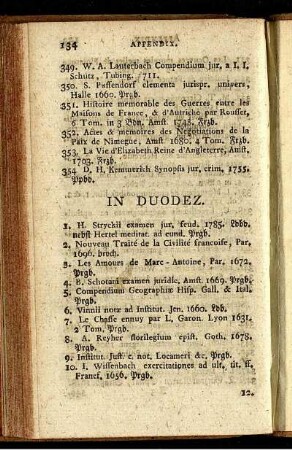 134 APPENDIX.
349. W. A. Lauterbach Compendium jur, a I. I.
Schutz, Tubing. 1711.
350. S. Puffendorf elementa jurispr. univers,
Halle 1660. Prgb.
351. Histoire memorable des Guerres entre les
Maisons de France, & d'Autriche par Rousset,
6 Tom. in 3 Bdn. Amst. 1748. Frzb.
352. Actes & memoires des Negotiations de la
Paix de Nimegue, Amst. 1680. 4 Tom. Frzb.
353. La Vie d'Elizabeth, Reine d'Angleterre, Amst.
1703. Frzb.
354 D. H. Kemmerich Synopsis jur, crim, 1755.
Ppbd.
IN DUODEZ.
1. H. Strykii examen jur, feud. 1785. Ldbb.
nebst Hertel meditat. ad eund. Prgb.
2. Nouveau Traité de la Civilité francoise, Par,
1696. broch.
3. Les Amours de Marc-Antoine, Par, 1672.
Prgb.
4. B. Schotani examen juridic. Amst. 1669. Prgb.
5. Compendium Geographiæ Hisp. Gall. & Ital.
Prgb.
6. Vinnii notæ ad Institut. Jen. 1660. Ldb.
7. Le Chasse ennuy par L, Garon. Lyon 1631.
2 Tom. Prgb.
8. A. Reyher florilegium epist, Goth, 1678.
Prgb.
9. Institut. Just. c. not, Locameri &c, Prgb.
10. I. Wissenbach exercitationes ad ult, tit. ff.
Francf, 1656. Prgb.
12.